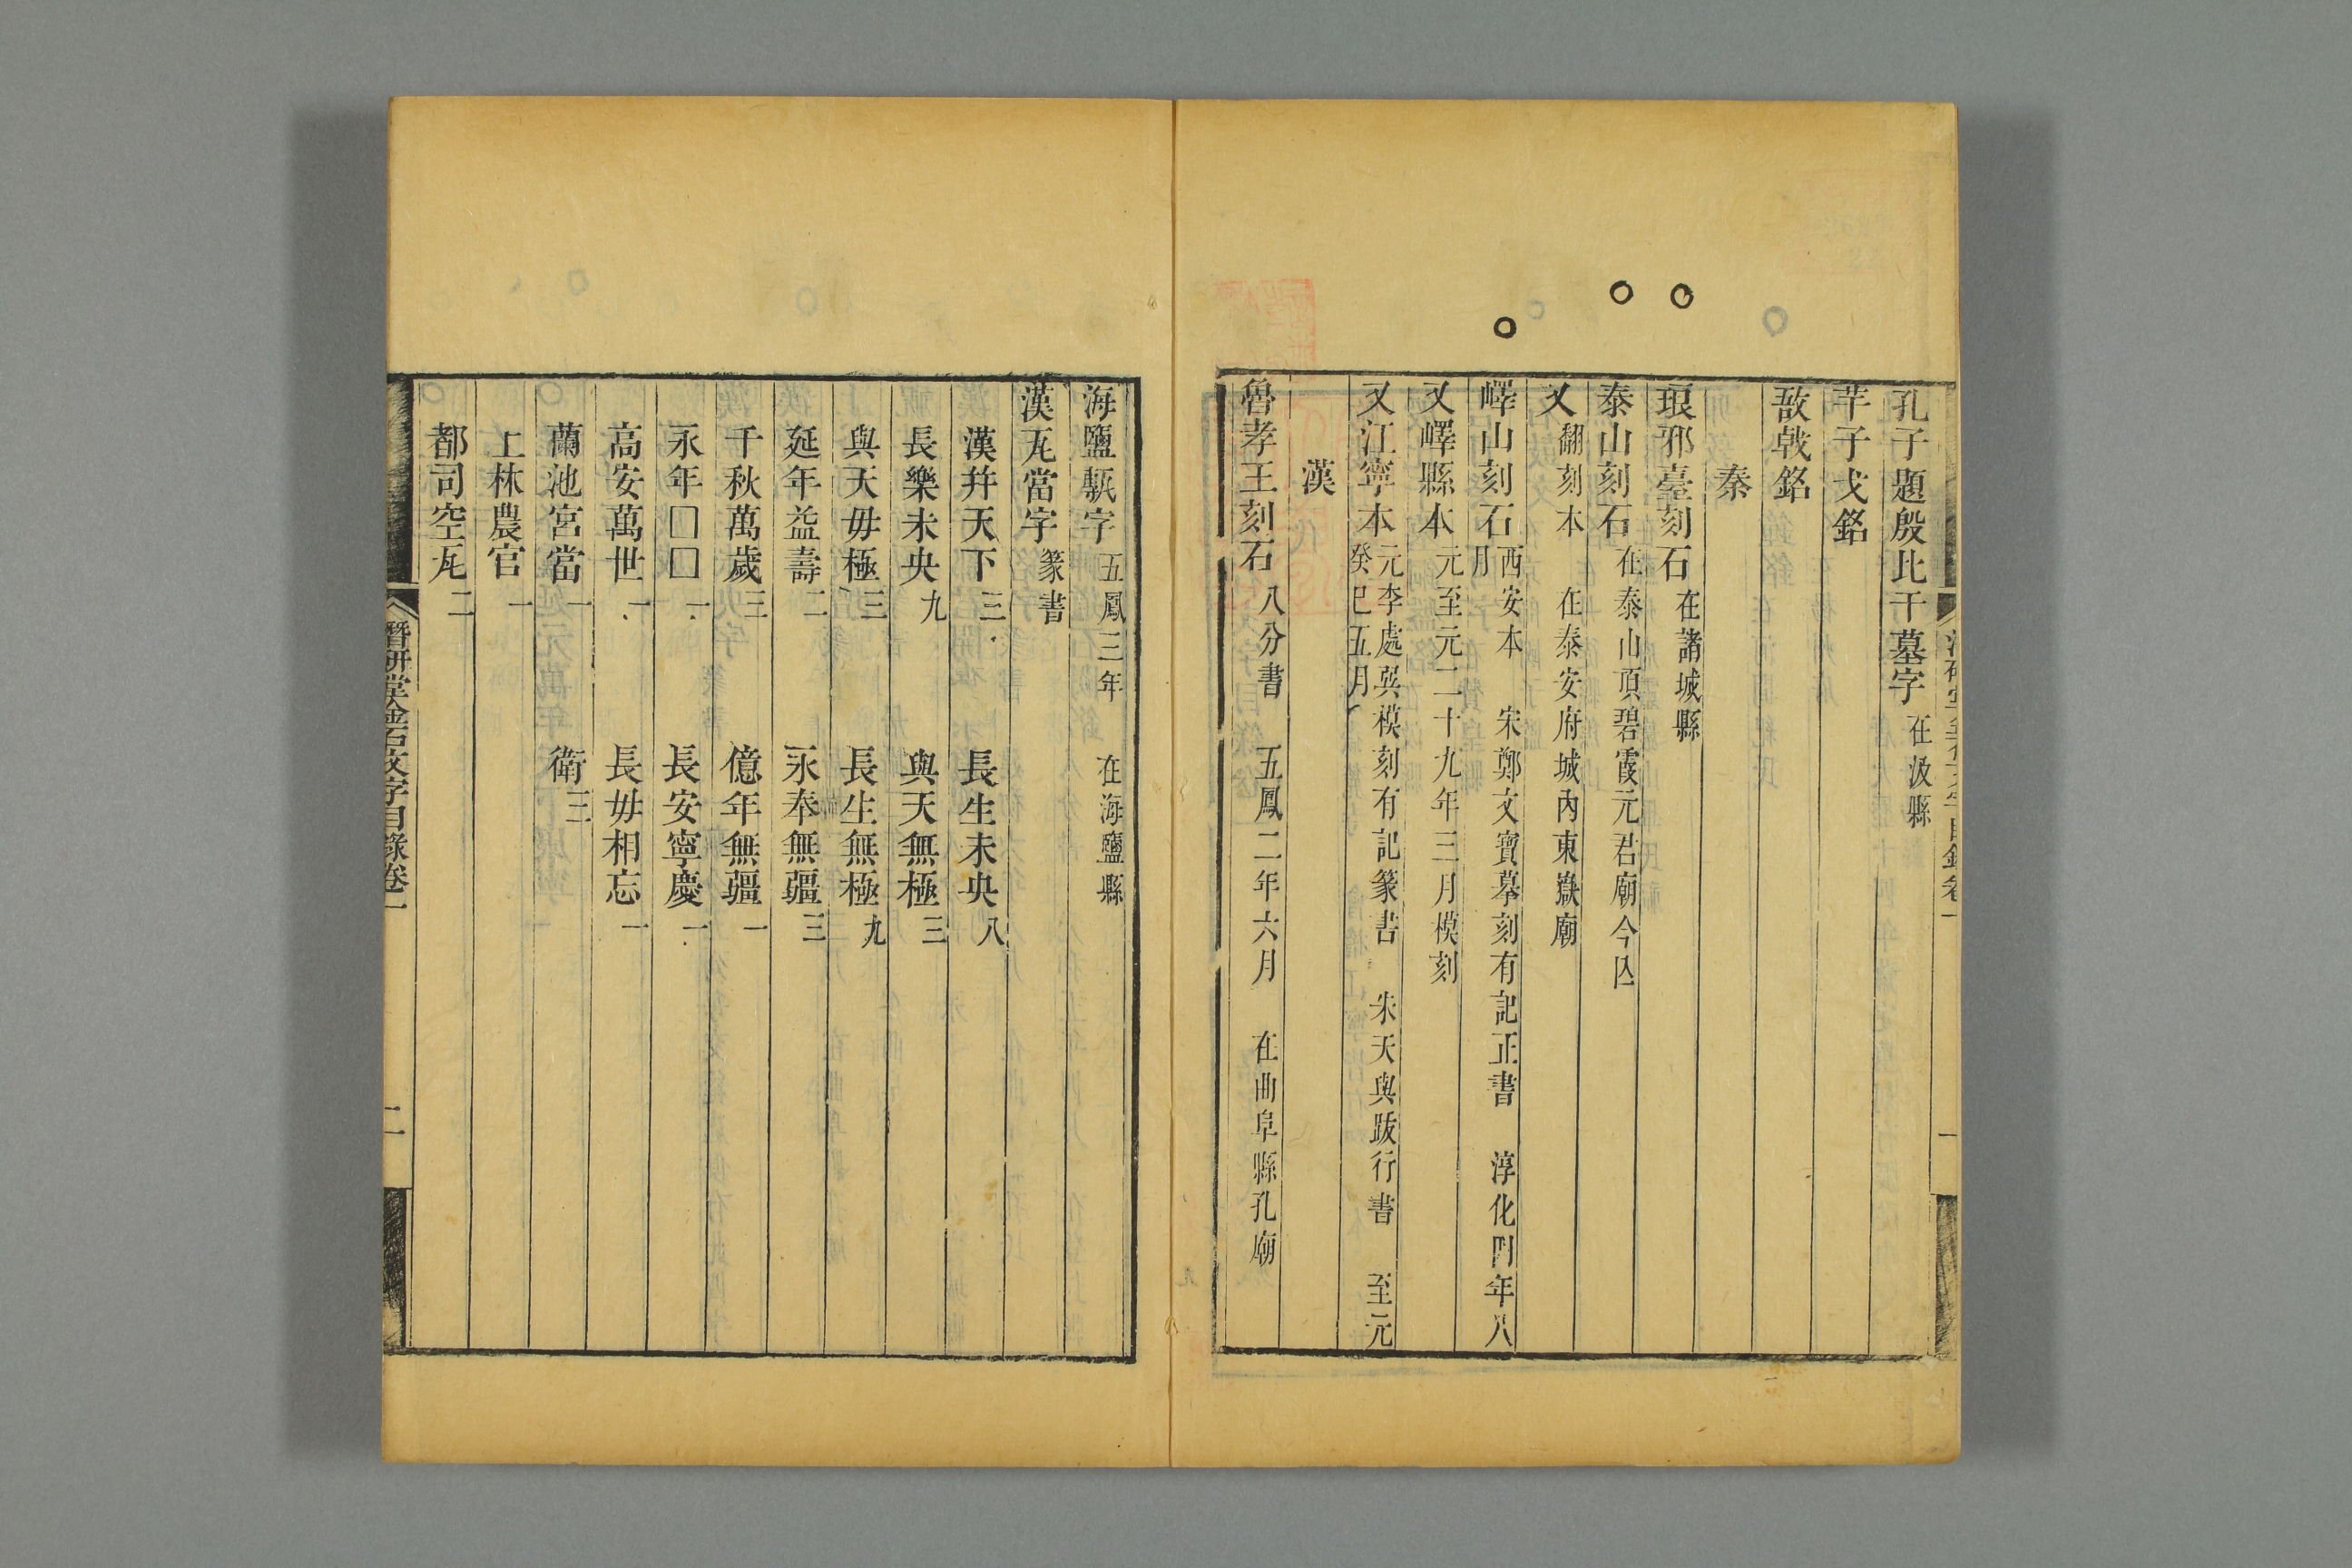 孔子題殷比干墓字 在汲縣
羋子戈銘
敔戟銘
秦
琅邪臺刻石 在諸城縣
泰山刻石 在泰山頂碧霞元君廟今亾
又翻刻本 在泰安府城內東嶽廟
嶧山刻石 西安本 宋鄭文寶摹刻有記正書 淳化四年八月
又嶧縣本 元至元二十九年三月模刻
又江寧本 元李處巽模刻有記篆書 朱天與跋行書 至元癸巳五月
漢
魯孝王刻石 八分書 五鳳二年六月 在曲阜縣孔廟
海鹽甎字 五鳳三年 在海鹽縣
漢瓦當字 篆書
漢幷天下 三 長生未央 八
長樂未央 九 與天無極 三
與天毋極 三 長生無極 九
延年益壽 二 永奉無疆 三
千秋萬歲 三 億年無疆 一
永年□□ 一 長安寧慶 一
高安萬世 一 長毋相忘 一
蘭池宮當 一 衛 三
上林農官 一
都司空瓦 二
潛研堂金石文字目錄卷一 二